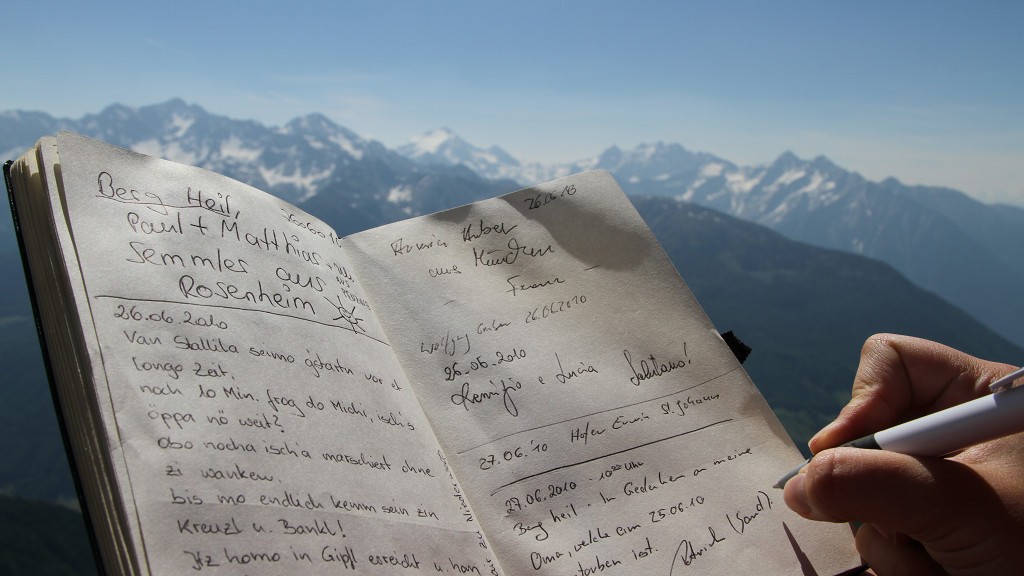 26.06.10
Berg Heil,
Paul + Matthias
Semmler aus
Rosenheim
26.06.2010
Van Stallila senmo gstartn vor a
longa Zeit.
noch 10 Min. frog do Michi, isch's
öppa nö weit?
Obo nocha isch a marschiert ohne
zi wankn.
bis mo endlich kemm sein zin
Kreuzl u. Bankl!
Itz homo in Gipfl erreicht u. hom
26.06.10
Huber
aus München
26.06.2010
26.06.2010
Remigio e Lucia Salutano!
27.06.'10 Hofer Erwin St. Johann
27.06.2010 - 10⁰⁰ Uhr
Berg heil - In Gedenken an meine
Oma, welche am 25.06.10
storben ist. Patrick